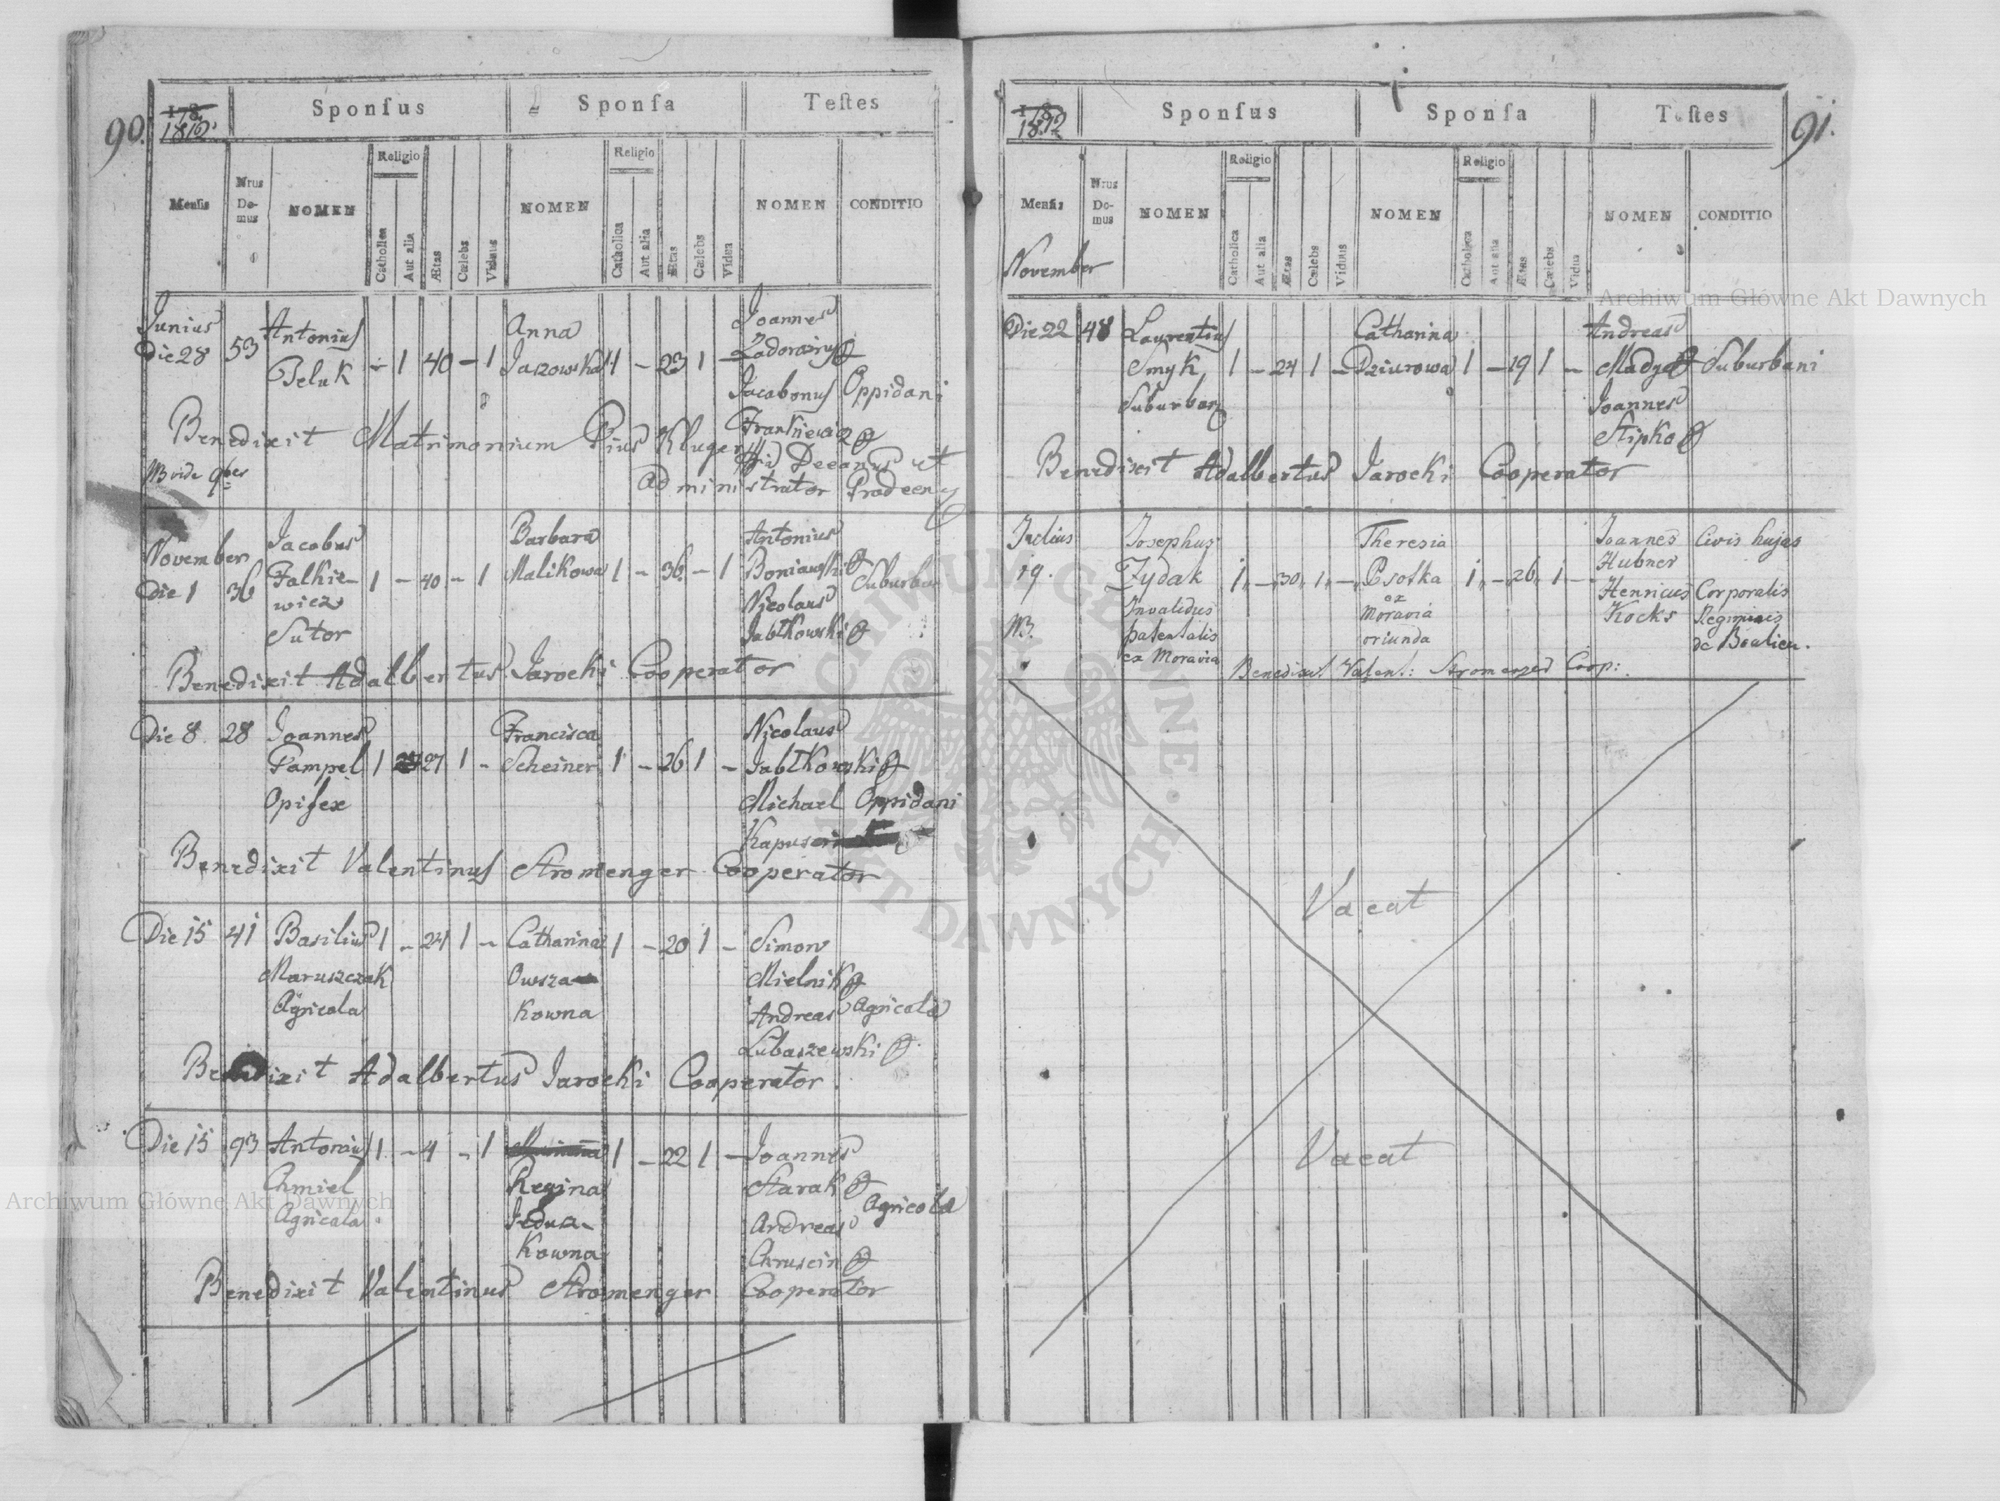 90.
1812.
Sponsus
Sponsa
Testes
Mensis
Nrus Domus
NOMEN
Religio
Catholica
Aut alia
Ætas
Cælebs
Viduus
NOMEN
Religio
Catholica
Aut alia
Ætas
Cælebs
Vidua
NOMEN
CONDITIO
Junius Antonius Anna Joannes
Die 28 53 Beluk - 1 40 - 1 1 - 23 1 -
Jacobonus Oppidani
Benedixit Matrimonium Pius Kluger
Administrator
November Jacobus Barbara Antonius
Die 1 36 Falkie- 1 - 40 - 1 Malikowa 1 - 36 - 1 Boniawski
wicz Nicolaus
Sutor Jabłkowski
Benedixit Adalbertus Jarocki Cooperator
Die 8 28 Joannes Francisca Nicolaus
Pampel 1 27 1 - Scheiner 1 - 26 1 - Jabłkowski
Opifex Michael Oppidani
Benedixit Valentinus Stromenger Cooperator
Die 15 41 Basilius 1 - 24 1 - Catharina 1 - 20 1 - Simon
Maruszczak Owsza Mielnik
Agricola kowna Andreas Agricola
Lubaszewski
Benedixit Adalbertus Jarocki Cooperator
Die 15 93 Antonius 1 - 4 - 1 1 - 22 1 - Joannes
Chmiel Regina Starak
Agricola Andreas Agricola
kowna
Benedixit Valentinus Stromenger Cooperator
1812
91.
Sponsus
Sponsa
Testes
Mensis
Nrus Domus
NOMEN
Religio
Catholica
Aut alia
Ætas
Cælebs
Viduus
NOMEN
Religio
Catholica
Aut alia
Ætas
Cælebs
Vidua
NOMEN
CONDITIO
November
Die 22 48 Laurentius Catharina Andreas
Smyk 1 - 24 1 - Dziurowa 1 - 19 1 - Suburbani
Joannes
Stipko
Benedixit Adalbertus Jarocki Cooperator
Julius Josephus Theresia Joannes Civis hujas
19. Zydak 1 - 30 1 - Psotka 1 - 26 1 - Hubner
Invalidus ex Henricus Corporalis
NB. patentalis Moravia Kocks Regiminis
ex Moravia oriunda de Beulieu.
Benedixit Valen.: Coop:
Vacat
Vacat
Archiwum Główne Akt Dawnych
Archiwum Główne Akt Dawnych
ARCHIWUM GŁÓWNE AKT DAWNYCH